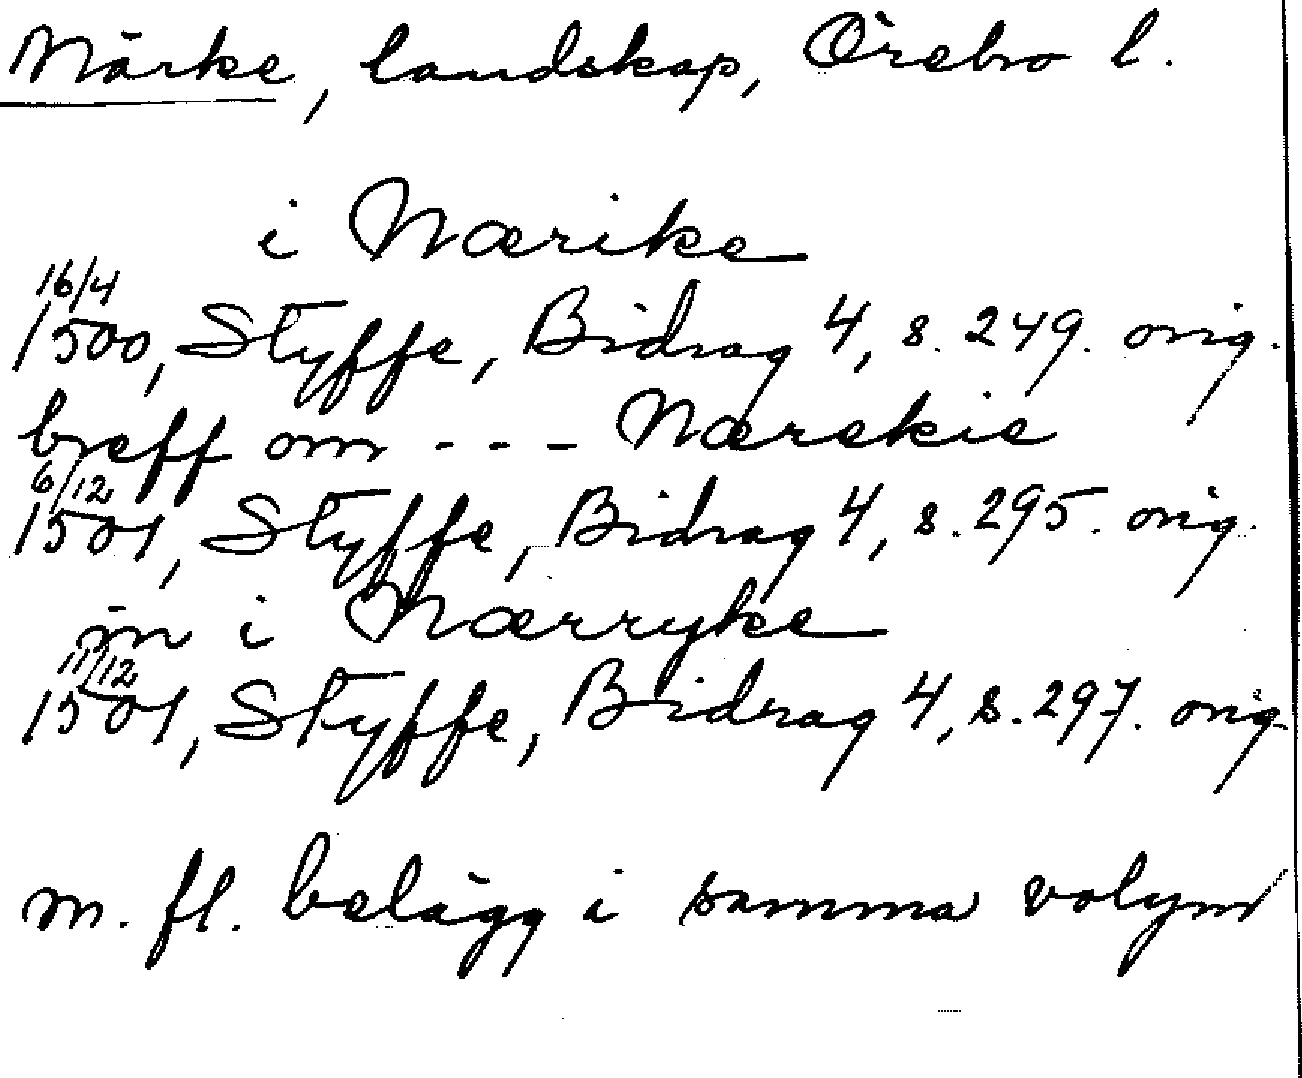 Närke, landskap, Örebro l.
i Nærike
16/4
1500, Styffe, Bidrag 4, s. 249. orig.
breff om - - - Nærekie
6/12
1501, Styffe, Bidrag 4, s. 295. orig.
in i Nærryke
11/12
1501, Styffe, Bidrag 4, s. 297. orig.
m. fl. belägg i samma volym